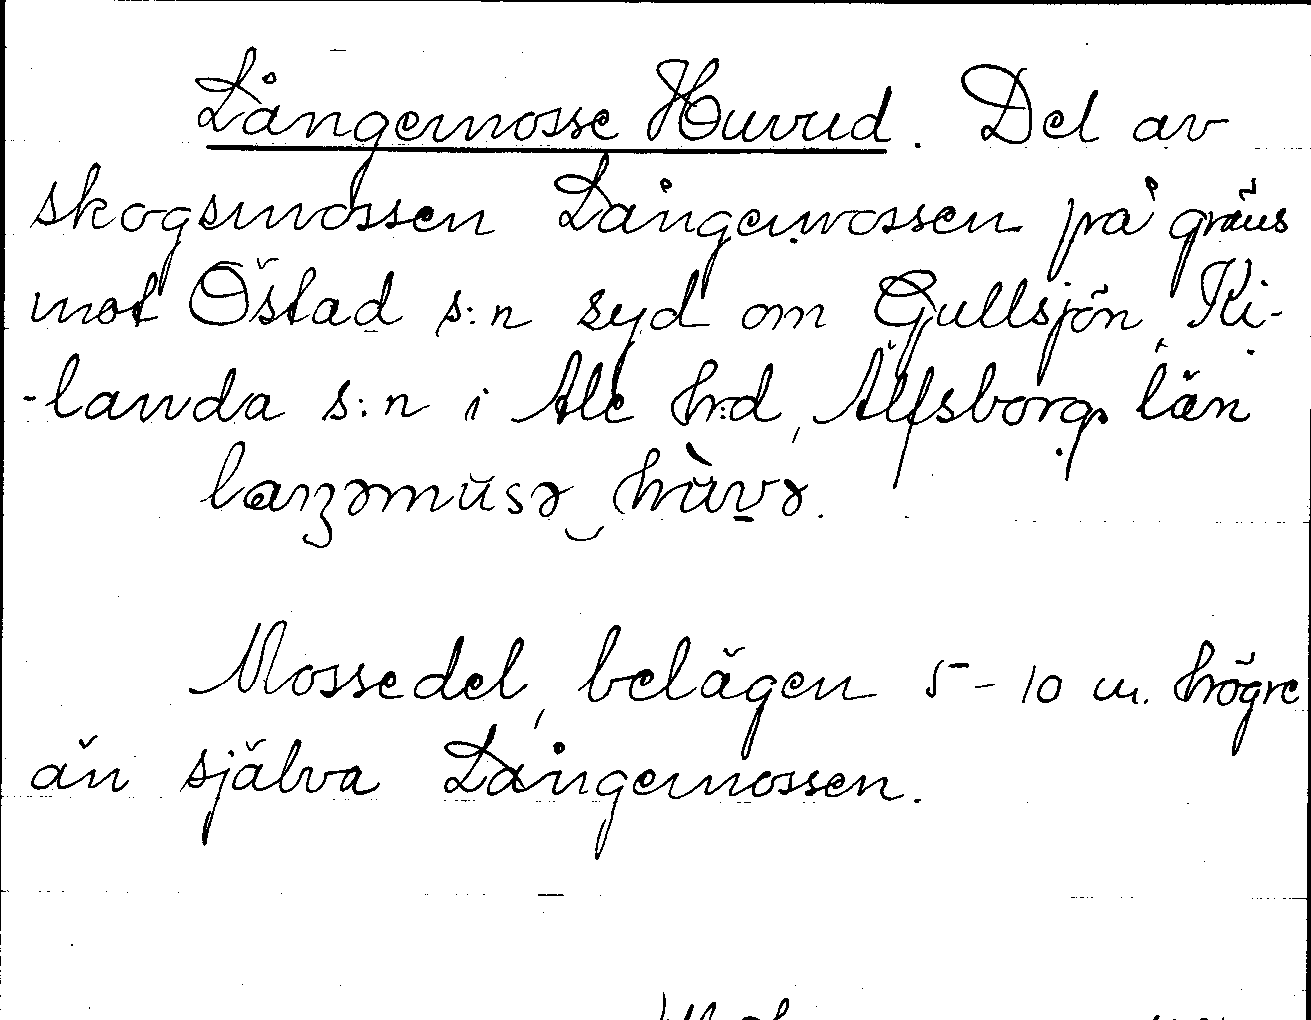 Långemosse Huvud. Del av
skogsmossen Långemossen på gräns
mot Östad s:n syd om Gullsjön, Ki-
-landa s:n i Ale h:d, Älfsborgs län
Mossedel, belägen 5-10 m. högre
än själva Långemossen.